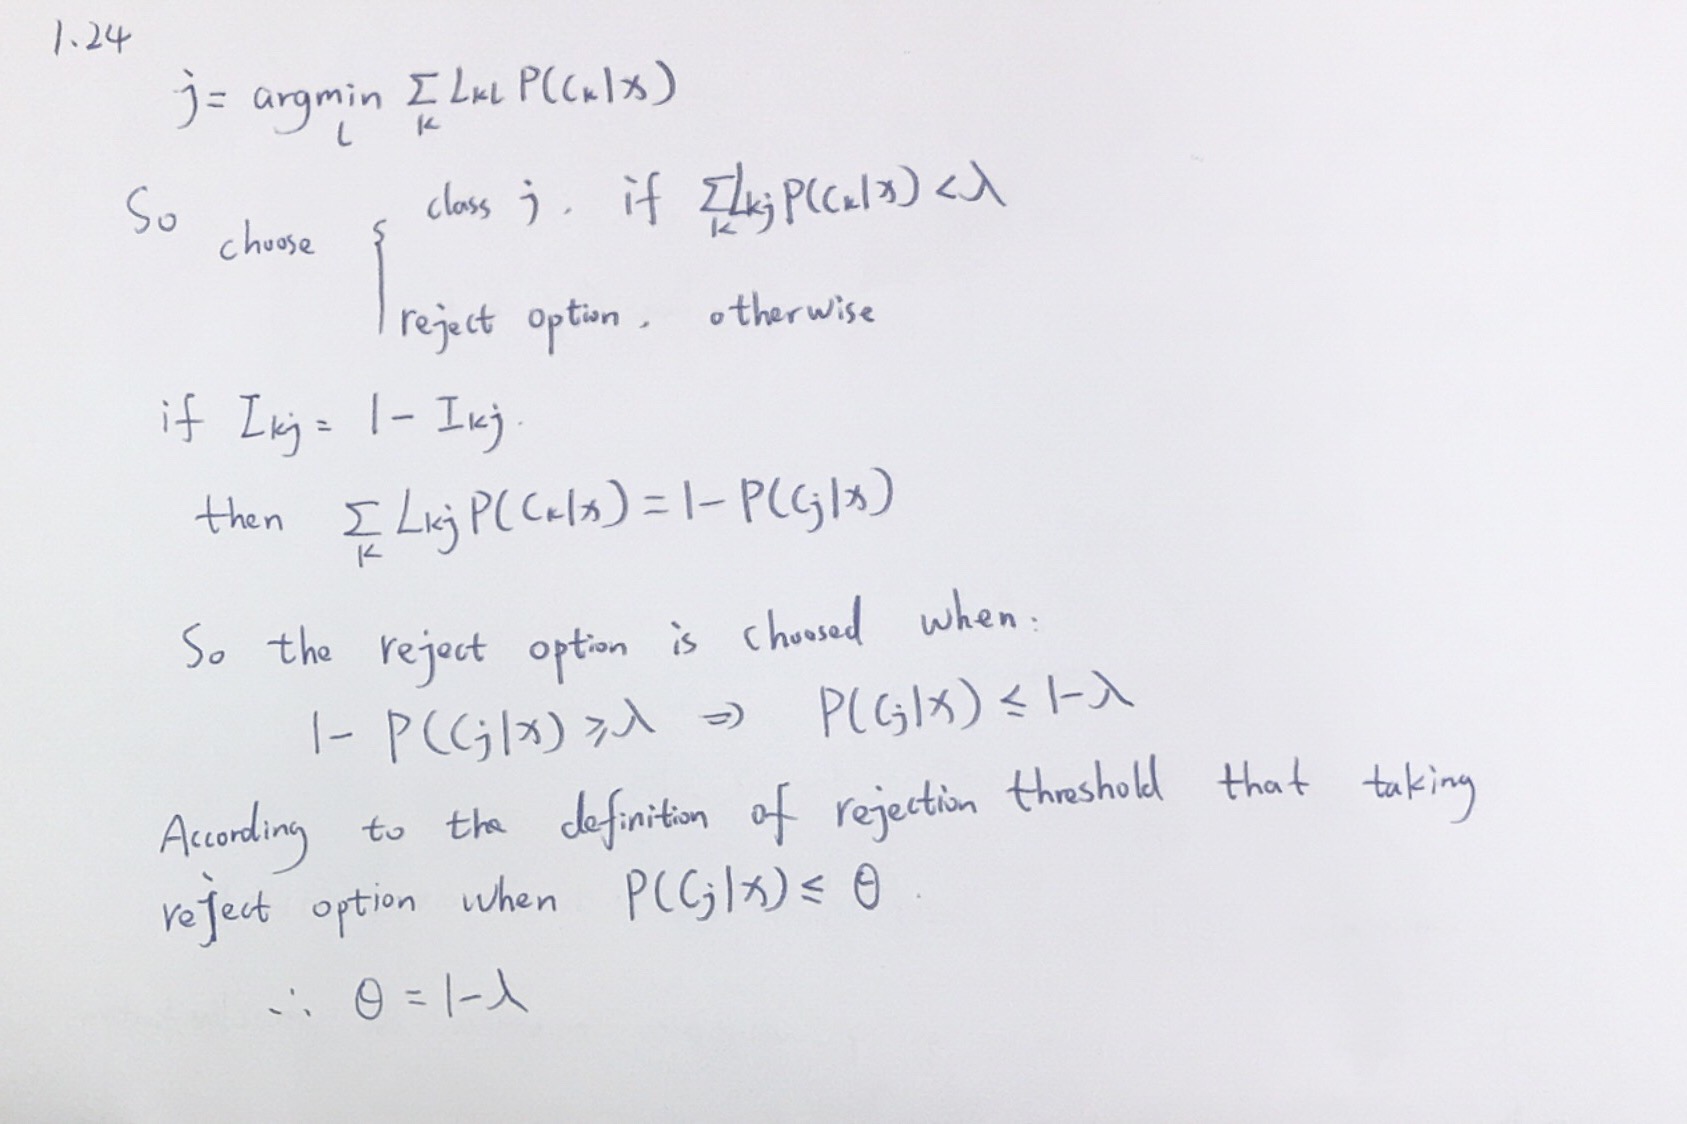 1.24
j = argmin_l Σ_k L_kl P(C_k|x)
So choose { class j. if Σ_k L_kj P(C_k|x) < λ
reject option. otherwise
if I_kj = 1 - I_kj.
then Σ_k L_kj P(C_k|x) = 1 - P(C_j|x)
So the reject option is choosed when:
1 - P(C_j|x) ≥ λ ⇒ P(C_j|x) ≤ 1-λ
According to the definition of rejection threshold that taking
reject option when P(C_j|x) ≤ θ.
∴ θ = 1-λ